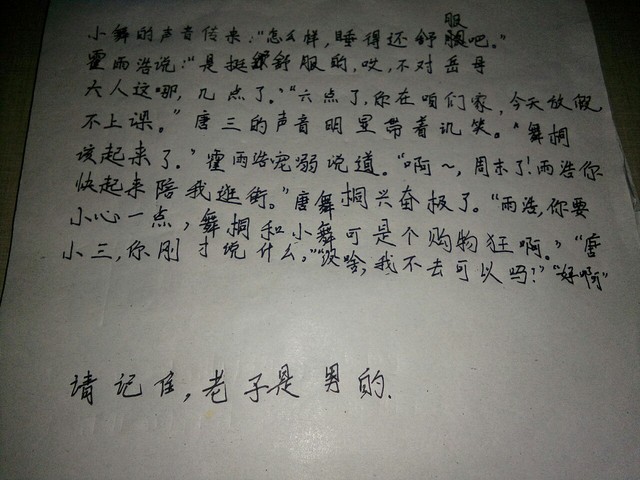 小舞的声音传来:“怎么样,睡得还舒服吧。”
霍雨浩说:“是挺舒服的,哎,不对岳母
大人这哪,几点了。”“六点了,你在咱们家,今天放假
不上课。”唐三的声音明显带着讥笑。“舞桐
该起来了。”霍雨浩宠弱说道。“啊~,周末了!雨浩你
快起来陪我逛街。”唐舞桐兴奋极了。“雨浩,你要
小心一点,舞桐和小舞可是个购物狂啊。”“唐
小三,你刚才说什么,”“没啥,我不去可以吗?”“好啊”
请记住,老子是男的.